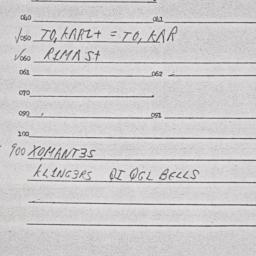 040 041
√050 TO, KARL+ = TO, KAR
√060 RLMA S+
061 062
070
090 091
100
900 XOMANT3S
KLING3RS QI QGL BELLS